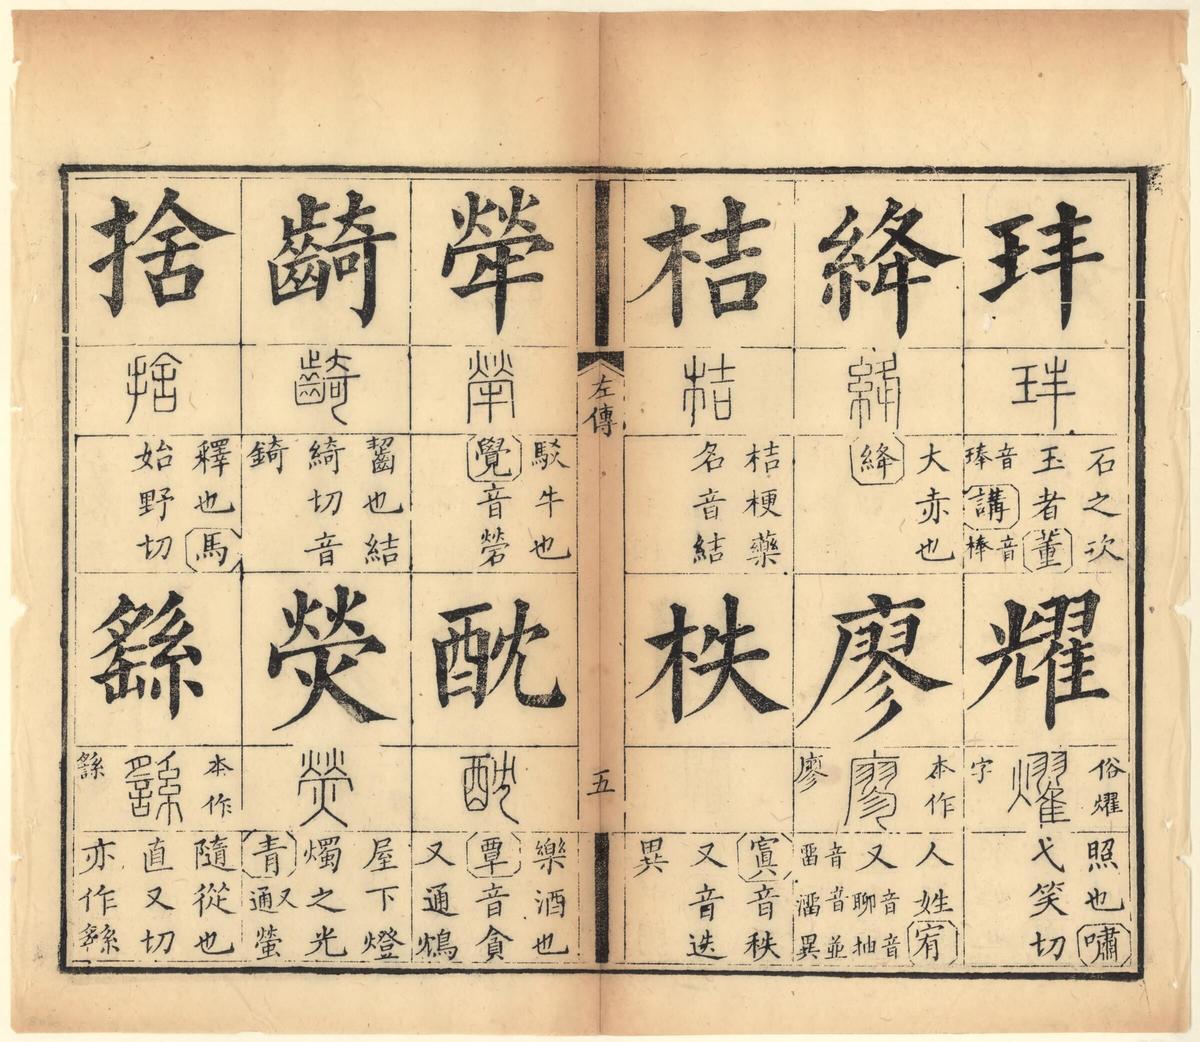 玤
玤
石之次
玉者董
音琫講音棒
耀
俗燿
燿
字
照也嘯
弋笑切
絳
絳
大赤也
絳
廖
本作
廖
廖
人姓宥
又音聊音抽
音畱音澑並異
桔
桔
桔梗藥
名音結
柣
寘音秩
又音迭
異
左傳
五
犖
犖
駁牛也
覺音
酖
酖
樂酒也
覃音貪
又通鴆
齮
齮
齧也結
綺切音
錡
熒
熒
屋下燈
燭之光
青又通螢
捨
捨
釋也馬
始野切
繇
本作
䌛
隨從也
直又切
亦作繇